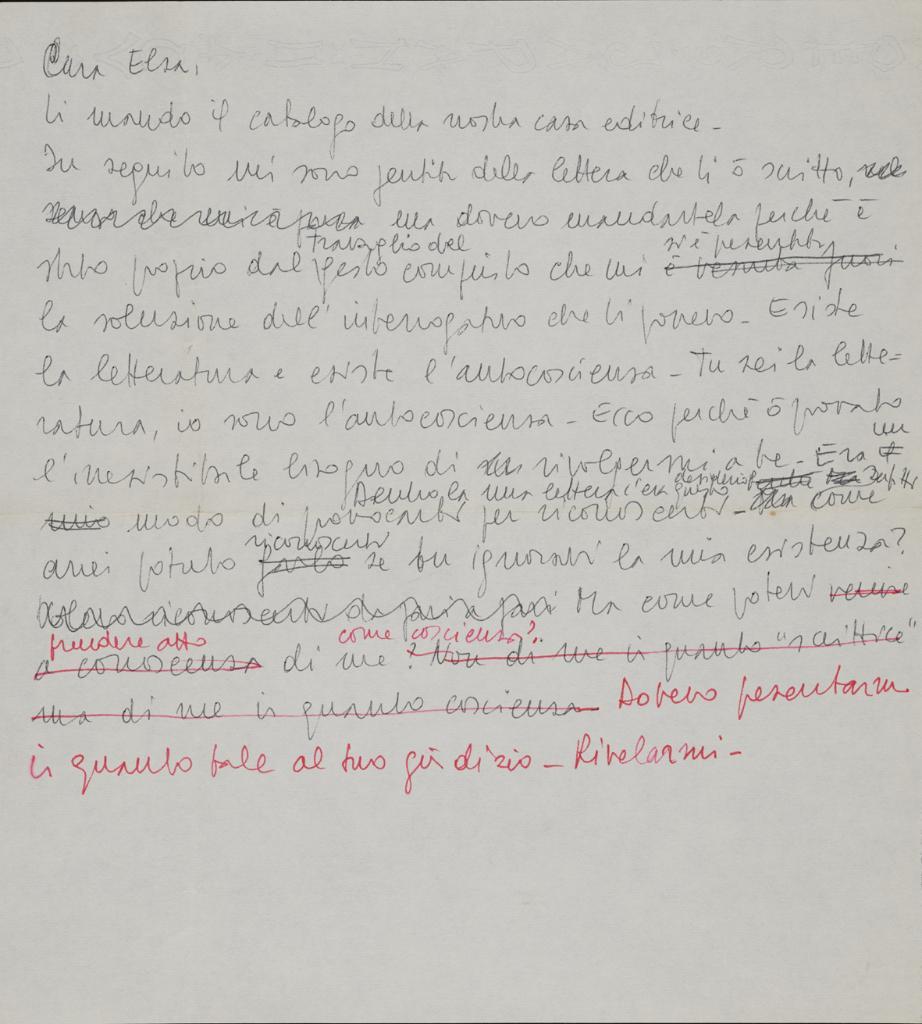 Cara Elsa,
ti mando il catalogo della nostra casa editrice -
In seguito mi sono pentita della lettera che ti ò scritto,
ma dovevo mandartela perché è
travaglio del si è presentata
stato proprio dal gesto compiuto che mi è venuta fuori
la soluzione dell'interrogativo che ti ponevo - Esiste
la letteratura e esiste l'autocoscienza - Tu sei la lette=
ratura, io sono l'autocoscienza - Ecco perché ò provato
un
l'irresistibile bisogno di rivolgermi a te - Era
Dentro la mia lettera c'era questo desiderio
mio modo di provocarti per riconoscerti - come
riconoscerti
avrei potuto farlo se tu ignoravi la mia esistenza?
Ma come potevi venire
prendere atto come coscienza?
a conoscenza di me? Non di me in quanto "scrittrice"
ma di me in quanto coscienza - Dovevo presentarmi
in quanto tale al tuo giudizio - Rivelarmi -